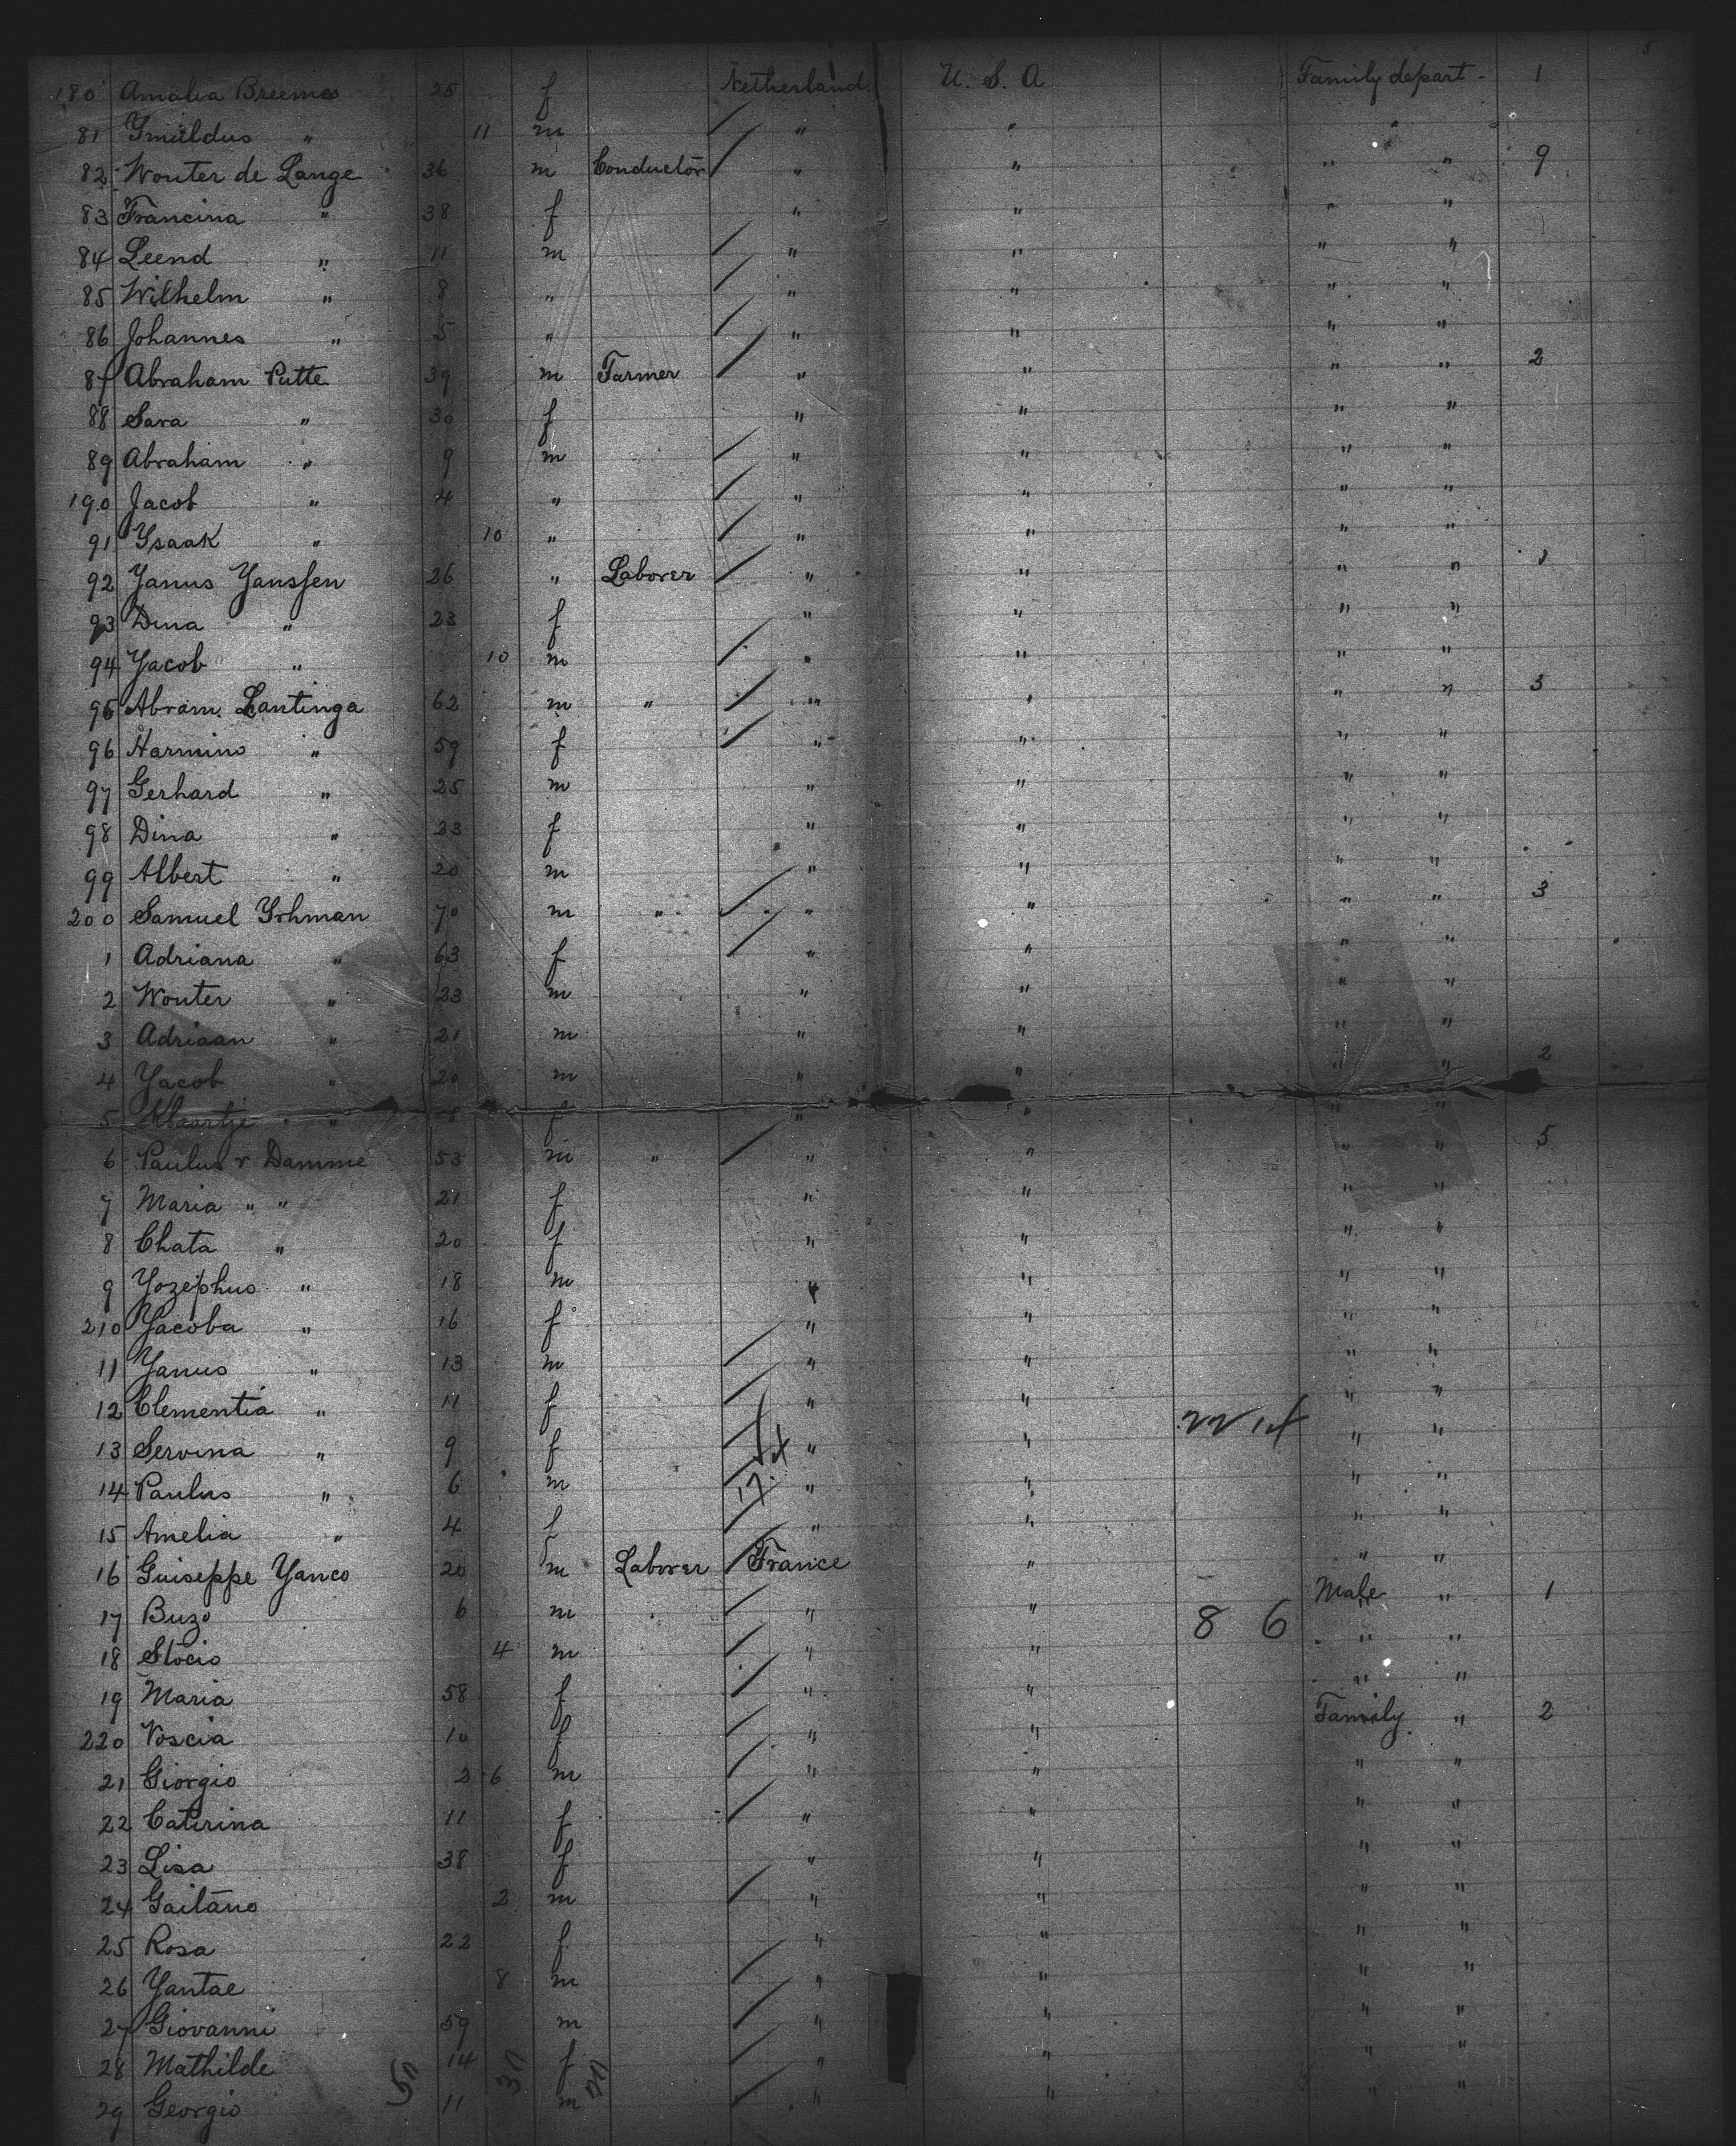 5
180 Amalia Breemes 25 f Netherland U. S. A Family depart. 1
81 Ymildus " 11 m " " "
82 Wouter de Lange 36 m Conductor " " " " 9
83 Francina " 38 f " " " "
84 Leend " 11 m " " " "
85 Wilhelm " 8 " " " " "
86 Johannes " 5 " " " " "
87 Abraham Putte 39 m Farmer " " " " 2
88 Sara " 30 f " " " "
89 Abraham " 9 m " " " "
190 Jacob " 4 " " " " "
91 Ysaak " 10 " " " " "
92 Yanus Yanssen 26 " Laborer " " " " 1
93 Dina " 23 f " " " "
94 Yacob " 10 m " " " "
95 Abram Lantinga 62 m " " " " " 3
96 Harmino " 59 f " " " "
97 Gerhard " 25 m " " " "
98 Dina " 23 f " " " "
99 Albert " 20 m " " " "
200 Samuel Yohman 70 m " " " " " 3
1 Adriana " 63 f " " " "
2 Wouter " 23 m " " " "
3 Adriaan " 21 m " " " "
4 Yacob " 20 m " " " " 2
5 " f " " " "
6 Paulus v Damme 53 m " " " " " 5
7 Maria " " 21 f " " " "
8 Chata " 20 f " " " "
9 Yozephus " 18 m " " " "
210 Yacoba " 16 f " " " "
11 Yanus " 13 m " " " "
12 Clementia " 11 f " " " "
13 Servina " 9 f " " " "
14 Paulus " 6 m " " " "
15 Amelia " 4 f " " " "
16 Guiseppe Yanco 20 m Laborer France " " "
17 Buzo 6 m " " 8 6 Male " 1
18 Stocio 4 m " " " "
19 Maria 58 f " " " "
220 Voscia 10 f " " Family " 2
21 Giorgio 2 6 m " " " "
22 Catirina 11 f " " " "
23 Lisa 38 f " " " "
24 Gaitano 2 m " " " "
25 Rosa 22 f " " " "
26 Yantae 8 m " " " "
27 Giovanni 59 m " " " "
28 Mathilde 14 f " " " "
29 Georgio 11 m " " " "